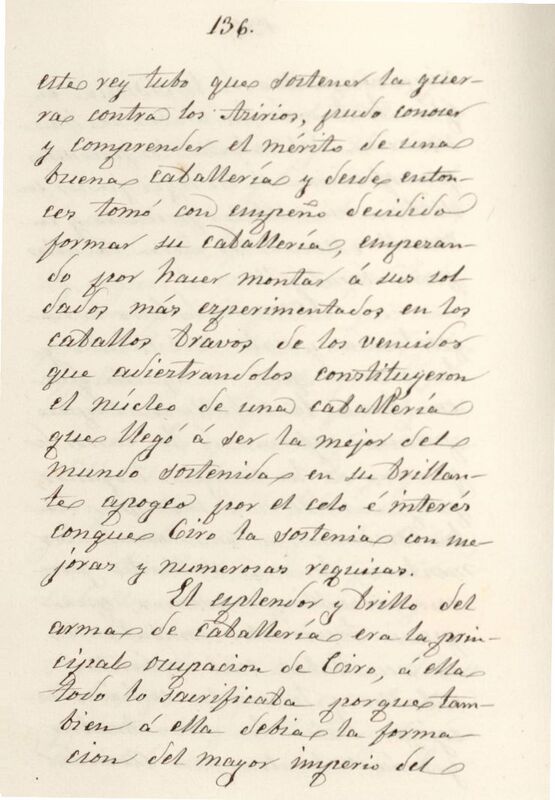 136.
este rey tubo que sostener la guer-
ra contra los Asirios, pudo conocer
y comprender el mérito de una
buena caballería y desde enton-
ces tomó con empeño decidido
formar su caballería, empezan-
do por hacer montar á sus sol
dados más experimentados en los
caballos bravos de los vencidos
que adieztrandolos constituyeron
el núcleo de una caballería
que llegó á ser la mejor del
mundo sostenida en su brillan-
te apogeo por el celo é interés
conque Ciro la sostenia con me-
joras y numerosas requisas.
El esplendor y brillo del
arma de caballería era la prin-
cipal ocupacion de Ciro, á ella
todo lo sacrificaba porque tam-
bien á ella debia la forma
cion del mayor imperio del